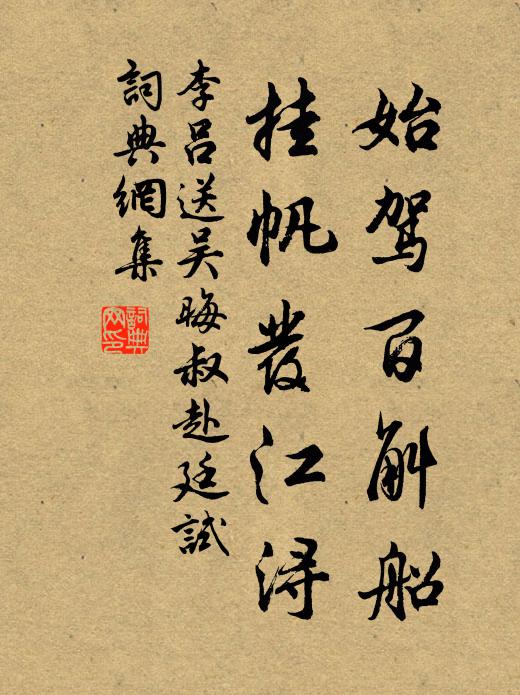 始驾百斛船
挂帆發江浔
李吕送吴晦叔赴廷試
詞典網集
詞典
网印